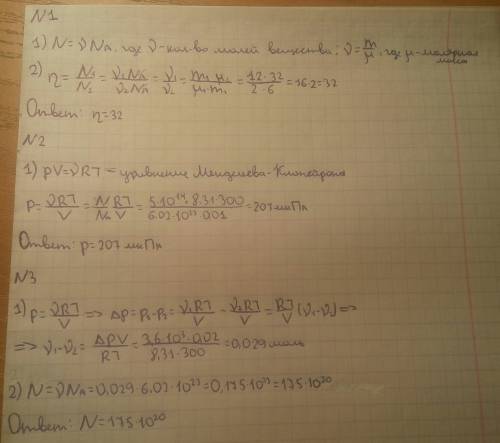 N1
1) N = νNA, где ν - кол-во молей вещества; ν = m/μ, где μ - молярная масса
2) η = N1/N2 = ν1NA/ν2NA = ν1/ν2 = m1 μ2/μ1·m2 = 12·32/2·6 = 16·2 = 32
Ответ: η = 32
N2
1) pV = νRT - уравнение Менделеева-Клапейрона
P = νRT/V = N RT/NA V = 5·10¹⁴·8.31·300/6.02·10²³·0.01 = 207 мкПа
Ответ: p = 207 мкПа
N3
1) p = νRT/V => Δp = p1 - p2 = ν1RT/V - ν2RT/V = RT/V (ν1 - ν2) =>
=> ν1 - ν2 = ΔPV/RT = 3,6·10³·0,02/8,31·300 = 0,029 моль
2) N = νNA = 0,029·6.02·10²³ = 0,175·10²³ = 175·10²⁰
Ответ: N = 175·10²⁰